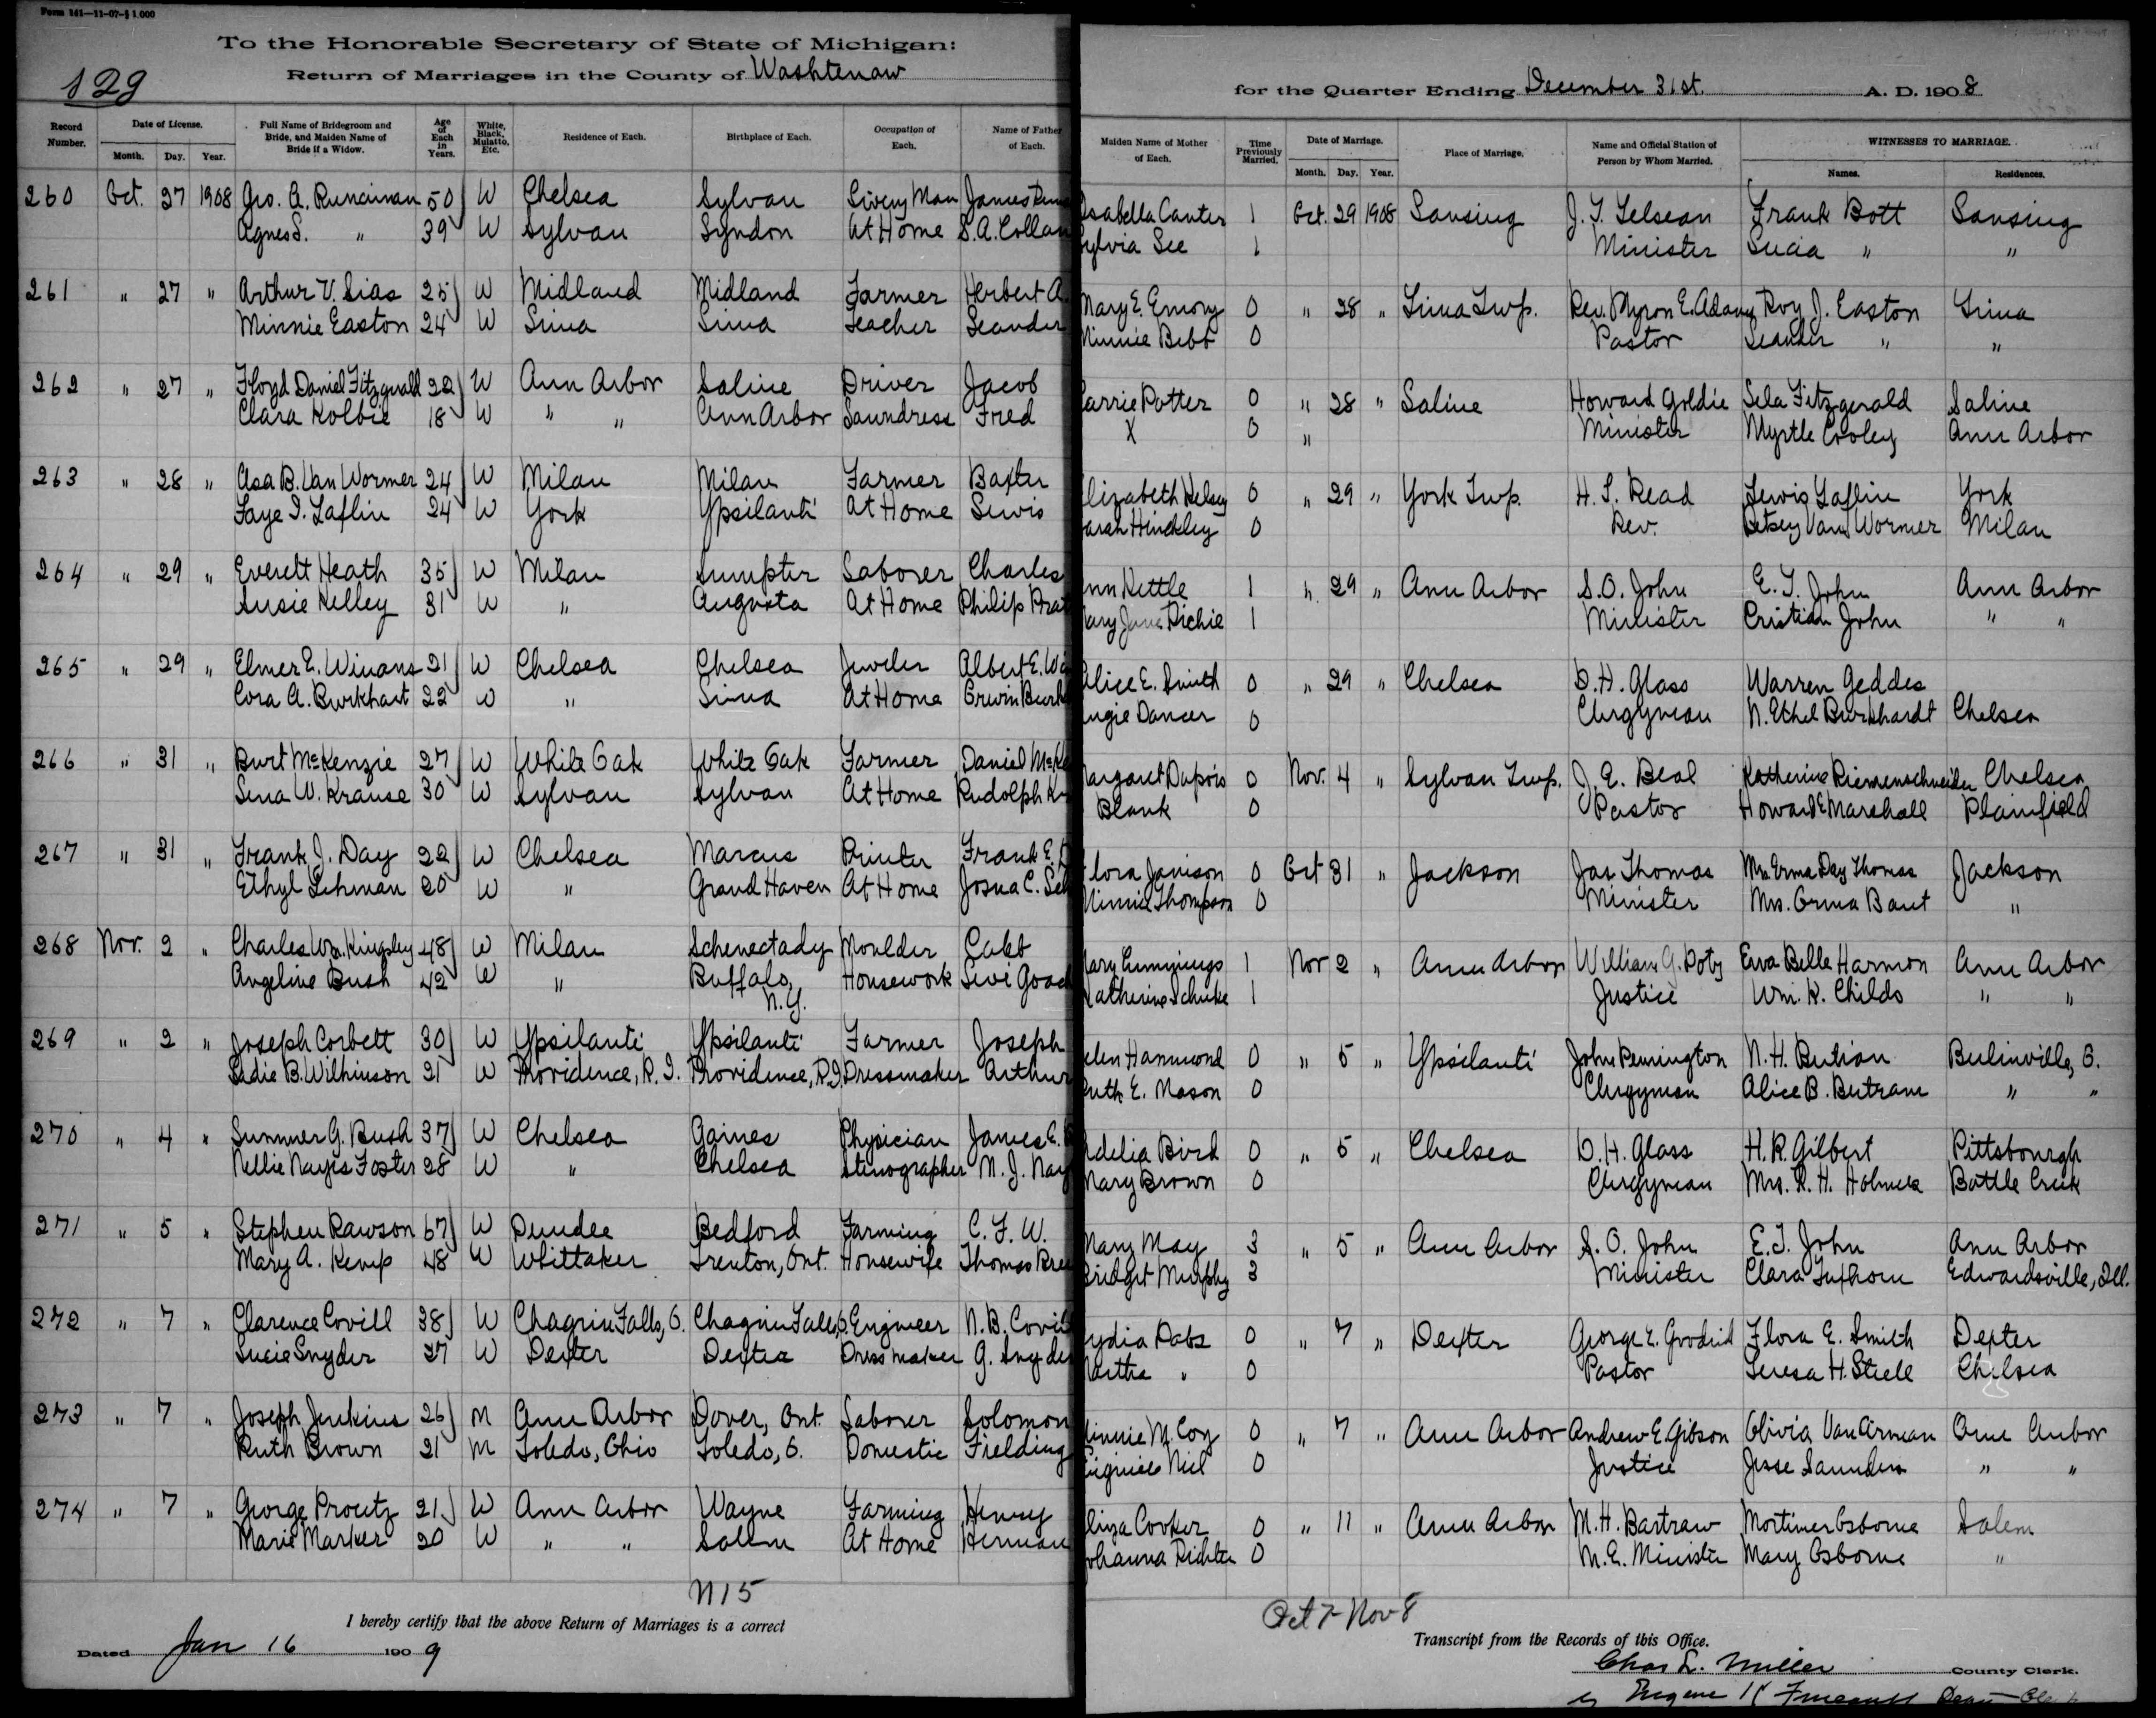 Form 141—11-07-§ 1,000
To the Honorable Secretary of State of Michigan:
129
Return of Marriages in the County of Washtenaw
for the Quarter Ending December 31st. A. D. 1908
Record Number. Date of License. Month. Day. Year. Full Name of Bridegroom and Bride, and Maiden Name of Bride if a Widow. Age of Each in Years. White, Black, Mulatto, Etc. Residence of Each. Birthplace of Each. Occupation of Each. Name of Father of Each. Maiden Name of Mother of Each. Time Previously Married. Date of Marriage. Month. Day. Year. Place of Marriage. Name and Official Station of Person by Whom Married. WITNESSES TO MARRIAGE. Names. Residences.
260 Oct. 27 1908 Geo. A. Runciman 50 W Chelsea Sylvan Livery Man James Isabella Canter 1 Oct. 29 1908 Lansing Frank Bott Lansing
Agnes S. " 39 W Sylvan Lyndon At Home S. A. Sylvia Lee 1 Minister Lucia " "
261 " 27 " Arthur V. Sias 25 W Midland Midland Farmer Herbert A. Mary E. Emory 0 " 28 " Lima Twp. Rev. Myron E. Adams Roy J. Easton Lima
Minnie Easton 24 W Lima Lima Teacher Leander Minnie Bibb 0 Pastor Leander " "
262 " 27 " Floyd Daniel Fitzgerald 22 W Ann Arbor Saline Driver Jacob Carrie Potter 0 " 28 " Saline Howard Goldie Lela Fitzgerald Saline
Clara Kolbie 18 W " " Ann Arbor Laundress Fred X 0 " Minister Myrtle Cooley Ann Arbor
263 " 28 " Asa B. Van Wormer 24 W Milan Milan Farmer Baxter Elizabeth Kelsey 0 " 29 " York Twp. H. S. Read Lewis Laflin York
Faye I. Laflin 24 W York Ypsilanti At Home Lewis Sarah Hinckley 0 Rev. Betsey Van Wormer Milan
264 " 29 " Everett Heath 35 W Milan Sumpter Laborer Charles Ann Kettle 1 " 29 " Ann Arbor S. O. John E. T. John Ann Arbor
Susie Kelley 31 W " Augusta At Home Philip Mary Jane Richie 1 Minister Cristian John " "
265 " 29 " Elmer E. Winans 21 W Chelsea Chelsea Jeweler Albert E. Alice E. Smith 0 " 29 " Chelsea D. H. Glass Warren Geddes
Cora A. Burkhart 22 W " Lima At Home Erwin Angie Dancer 0 Clergyman N. Ethel Burkhardt Chelsea
266 " 31 " Burt McKenzie 27 W White Oak White Oak Farmer Daniel Margaret Dupois 0 Nov. 4 " Sylvan Twp. J. E. Beal Katherine Riemenschneider Chelsea
Lena W. Krause 30 W Sylvan Sylvan At Home Rudolph Blank 0 Pastor Howard E Marshall Plainfield
267 " 31 " Frank J. Day 22 W Chelsea Marcus Printer Frank E. Flora Janison 0 Oct 31 " Jackson Jas Thomas Mrs. Erma Day Thomas Jackson
Ethyl Lehman 20 W " Grand Haven At Home Josua C. Minnie Thompson 0 Minister Mrs. Orma Bant "
268 Nov. 2 " Charles Wm. Kingsley 48 W Milan Schenectady Moulder Caleb Mary Cummings 1 Nov 2 " Ann Arbor William G. Doty Eva Belle Harmon Ann Arbor
Angeline Bush 42 W " Buffalo, N.Y. Housework Levi Katherine 1 Justice Wm. K. Childs " "
269 " 2 " Joseph Corbett 30 W Ypsilanti Ypsilanti Farmer Joseph Helen Hammond 0 " 5 " Ypsilanti John Pennington N. H. Butian Bulinville, O.
Sadie B. Wilkinson 21 W Providence, R. I. Providence, R.I. Dressmaker Arthur Ruth E. Mason 0 Clergyman Alice B. Butram " "
270 " 4 " Summer G. Bush 37 W Chelsea Gaines Physician James E. Adelia Bird 0 " 5 " Chelsea D. H. Glass H. R. Gilbert Pittsbourgh
Nellie Noyes Foster 28 W " Chelsea Stenographer M. J. Mary Brown 0 Clergyman Mrs. R. H. Holmes Battle Creek
271 " 5 " Stephen Rawson 67 W Dundee Bedford Farming C. F. W. Mary May 3 " 5 " Ann Arbor S. O. John E. T. John Ann Arbor
Mary A. Kemp 48 W Whittaker Trenton, Ont. Housewife Thomas Bridget Murphy 3 Minister Clara Edwardsville, Ill.
272 " 7 " Clarence Covill 38 W Chagrin Falls, O. Chagrin Falls, O. Engineer N. B. Covil Lydia Pabs 0 " 7 " Dexter George E. Flora E. Smith Dexter
Lucie Snyder 27 W Dexter Dexter Dressmaker G. Snyder Martha " 0 Pastor Teresa H. Steele Chelsea
273 " 7 " Joseph Jenkins 26 M Ann Arbor Dover, Ont. Laborer Solomon Minnie McCoy 0 " 7 " Ann Arbor Andrew E. Gibson Olivia Van Arman Ann Arbor
Ruth Brown 21 M Toledo, Ohio Toledo, O. Domestic Fielding 0 Justice Jesse Saunders " "
274 " 7 " George Proutz 21 W Ann Arbor Wayne Farming Henry Eliza Cooker 0 " 11 " Ann Arbor M. H. Bartraw Mortimer Osborne Salem
Marie Marker 20 W " " Salem At Home Herman Johanna Richter 0 M. E. Minister Mary Osborne "
N15
Oct 7- Nov 8
I hereby certify that the above Return of Marriages is a correct Transcript from the Records of this Office.
Dated Jan 16 1909
Chas L. Miller County Clerk.
by Eugene K